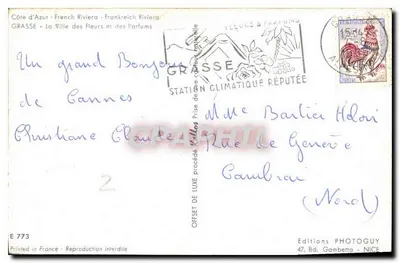 Côte d'Azur - French Riviera - Frankreich Riviera
GRASSE - La Ville des Fleurs et des Parfums
FLEURS & PARFUMS
GRASSE
STATION CLIMATIQUE RÉPUTÉE
15-14
Un grand Bonjour
de Cannes
Christiane Claude
2
OFFSET DE LUXE procédé
Mme Bartier
Rue de Genève
Cambrai
(Nord)
E 773
Printed in France - Reproduction interdite
Editions PHOTOGUY
47, Bd. Gambetta - NICE